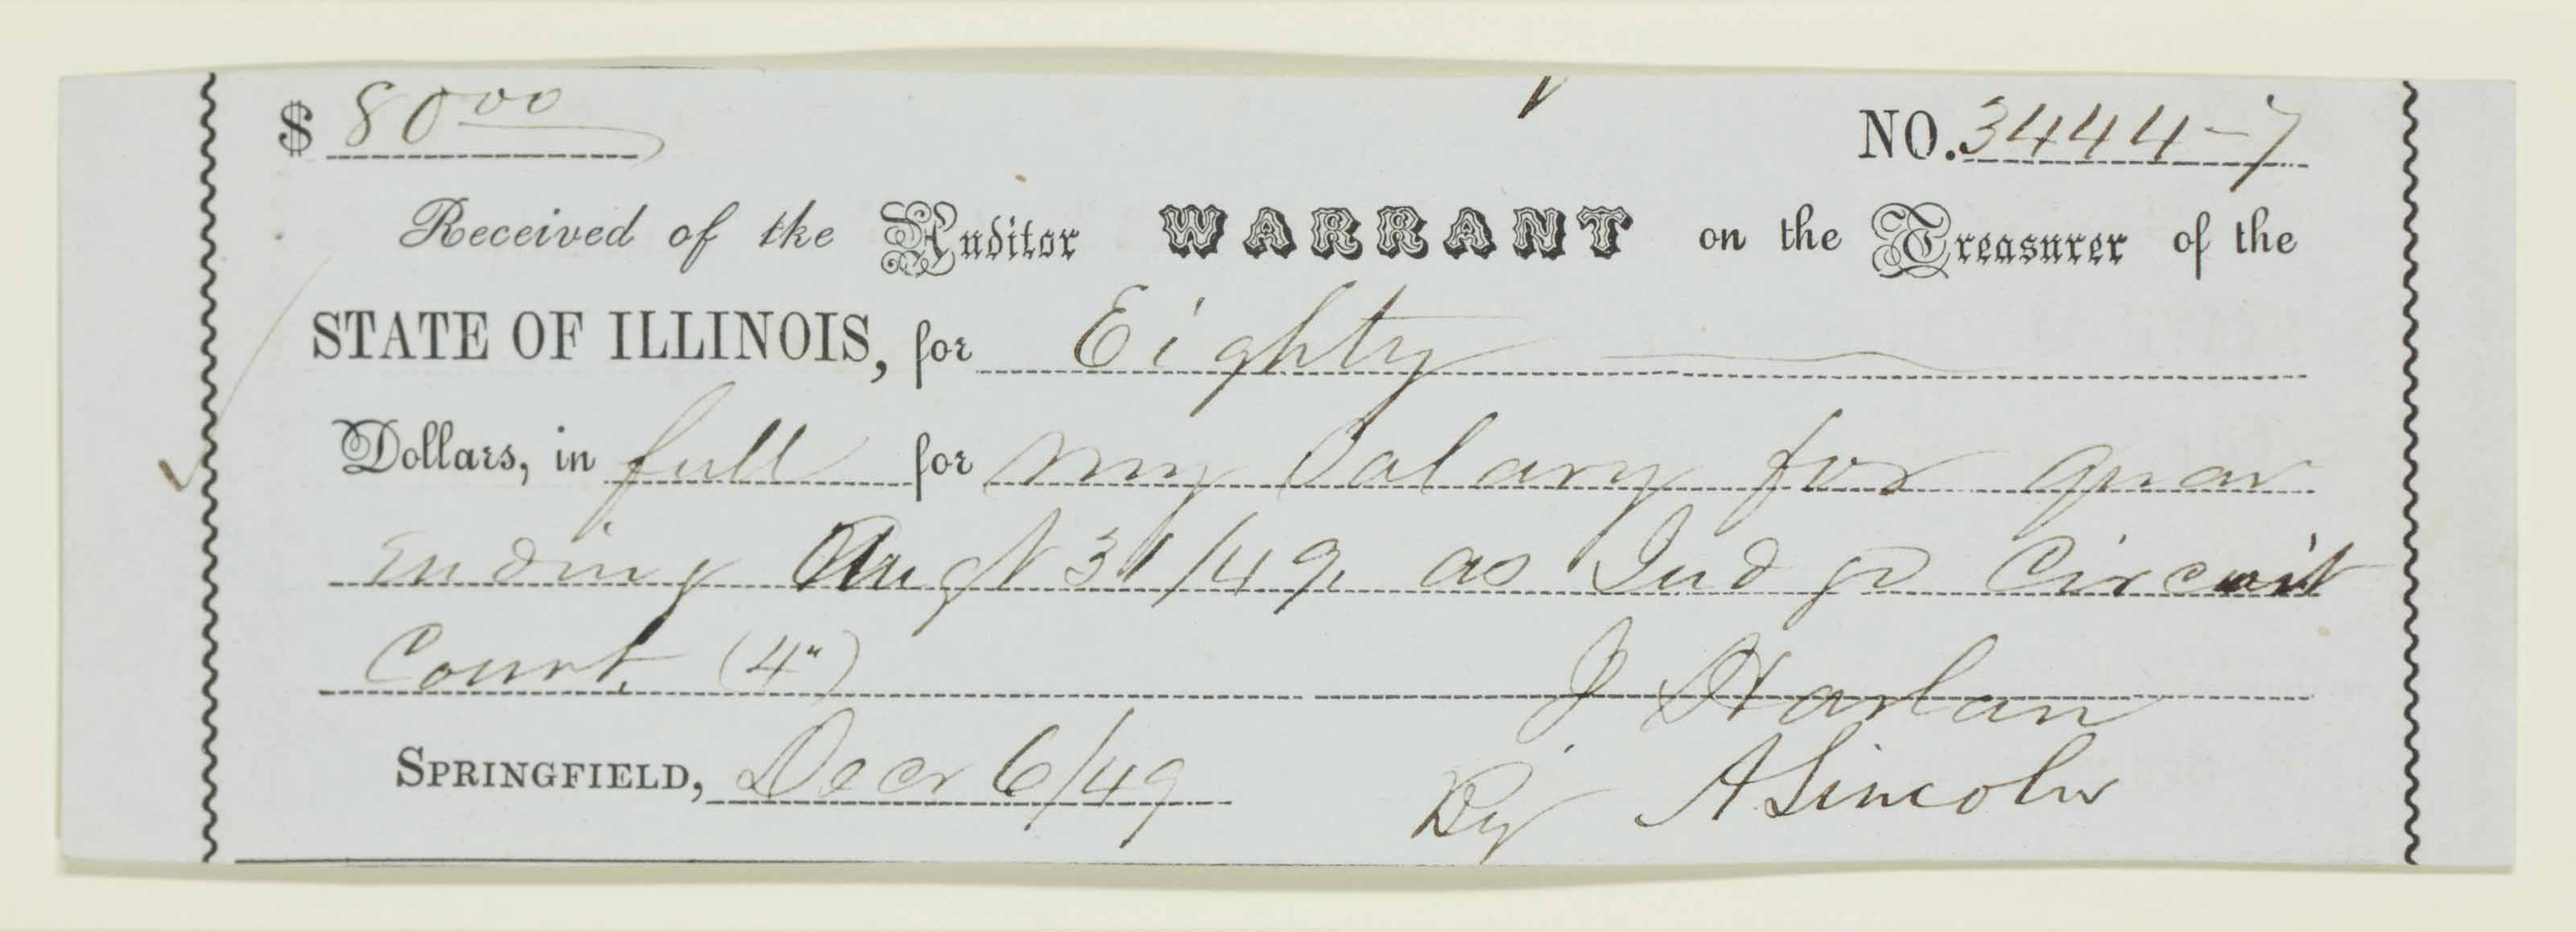 $ 80 00 NO. 3444-7
Received of the Auditor WARRANT on the Treasurer of the
STATE OF ILLINOIS, for Eighty
Dollars, in full for my Salary for quar
Ending Augt 31/49, as Judge Circuit
Court. (4")
J Harlan
SPRINGFIELD, Decr 6/49
By A Lincoln